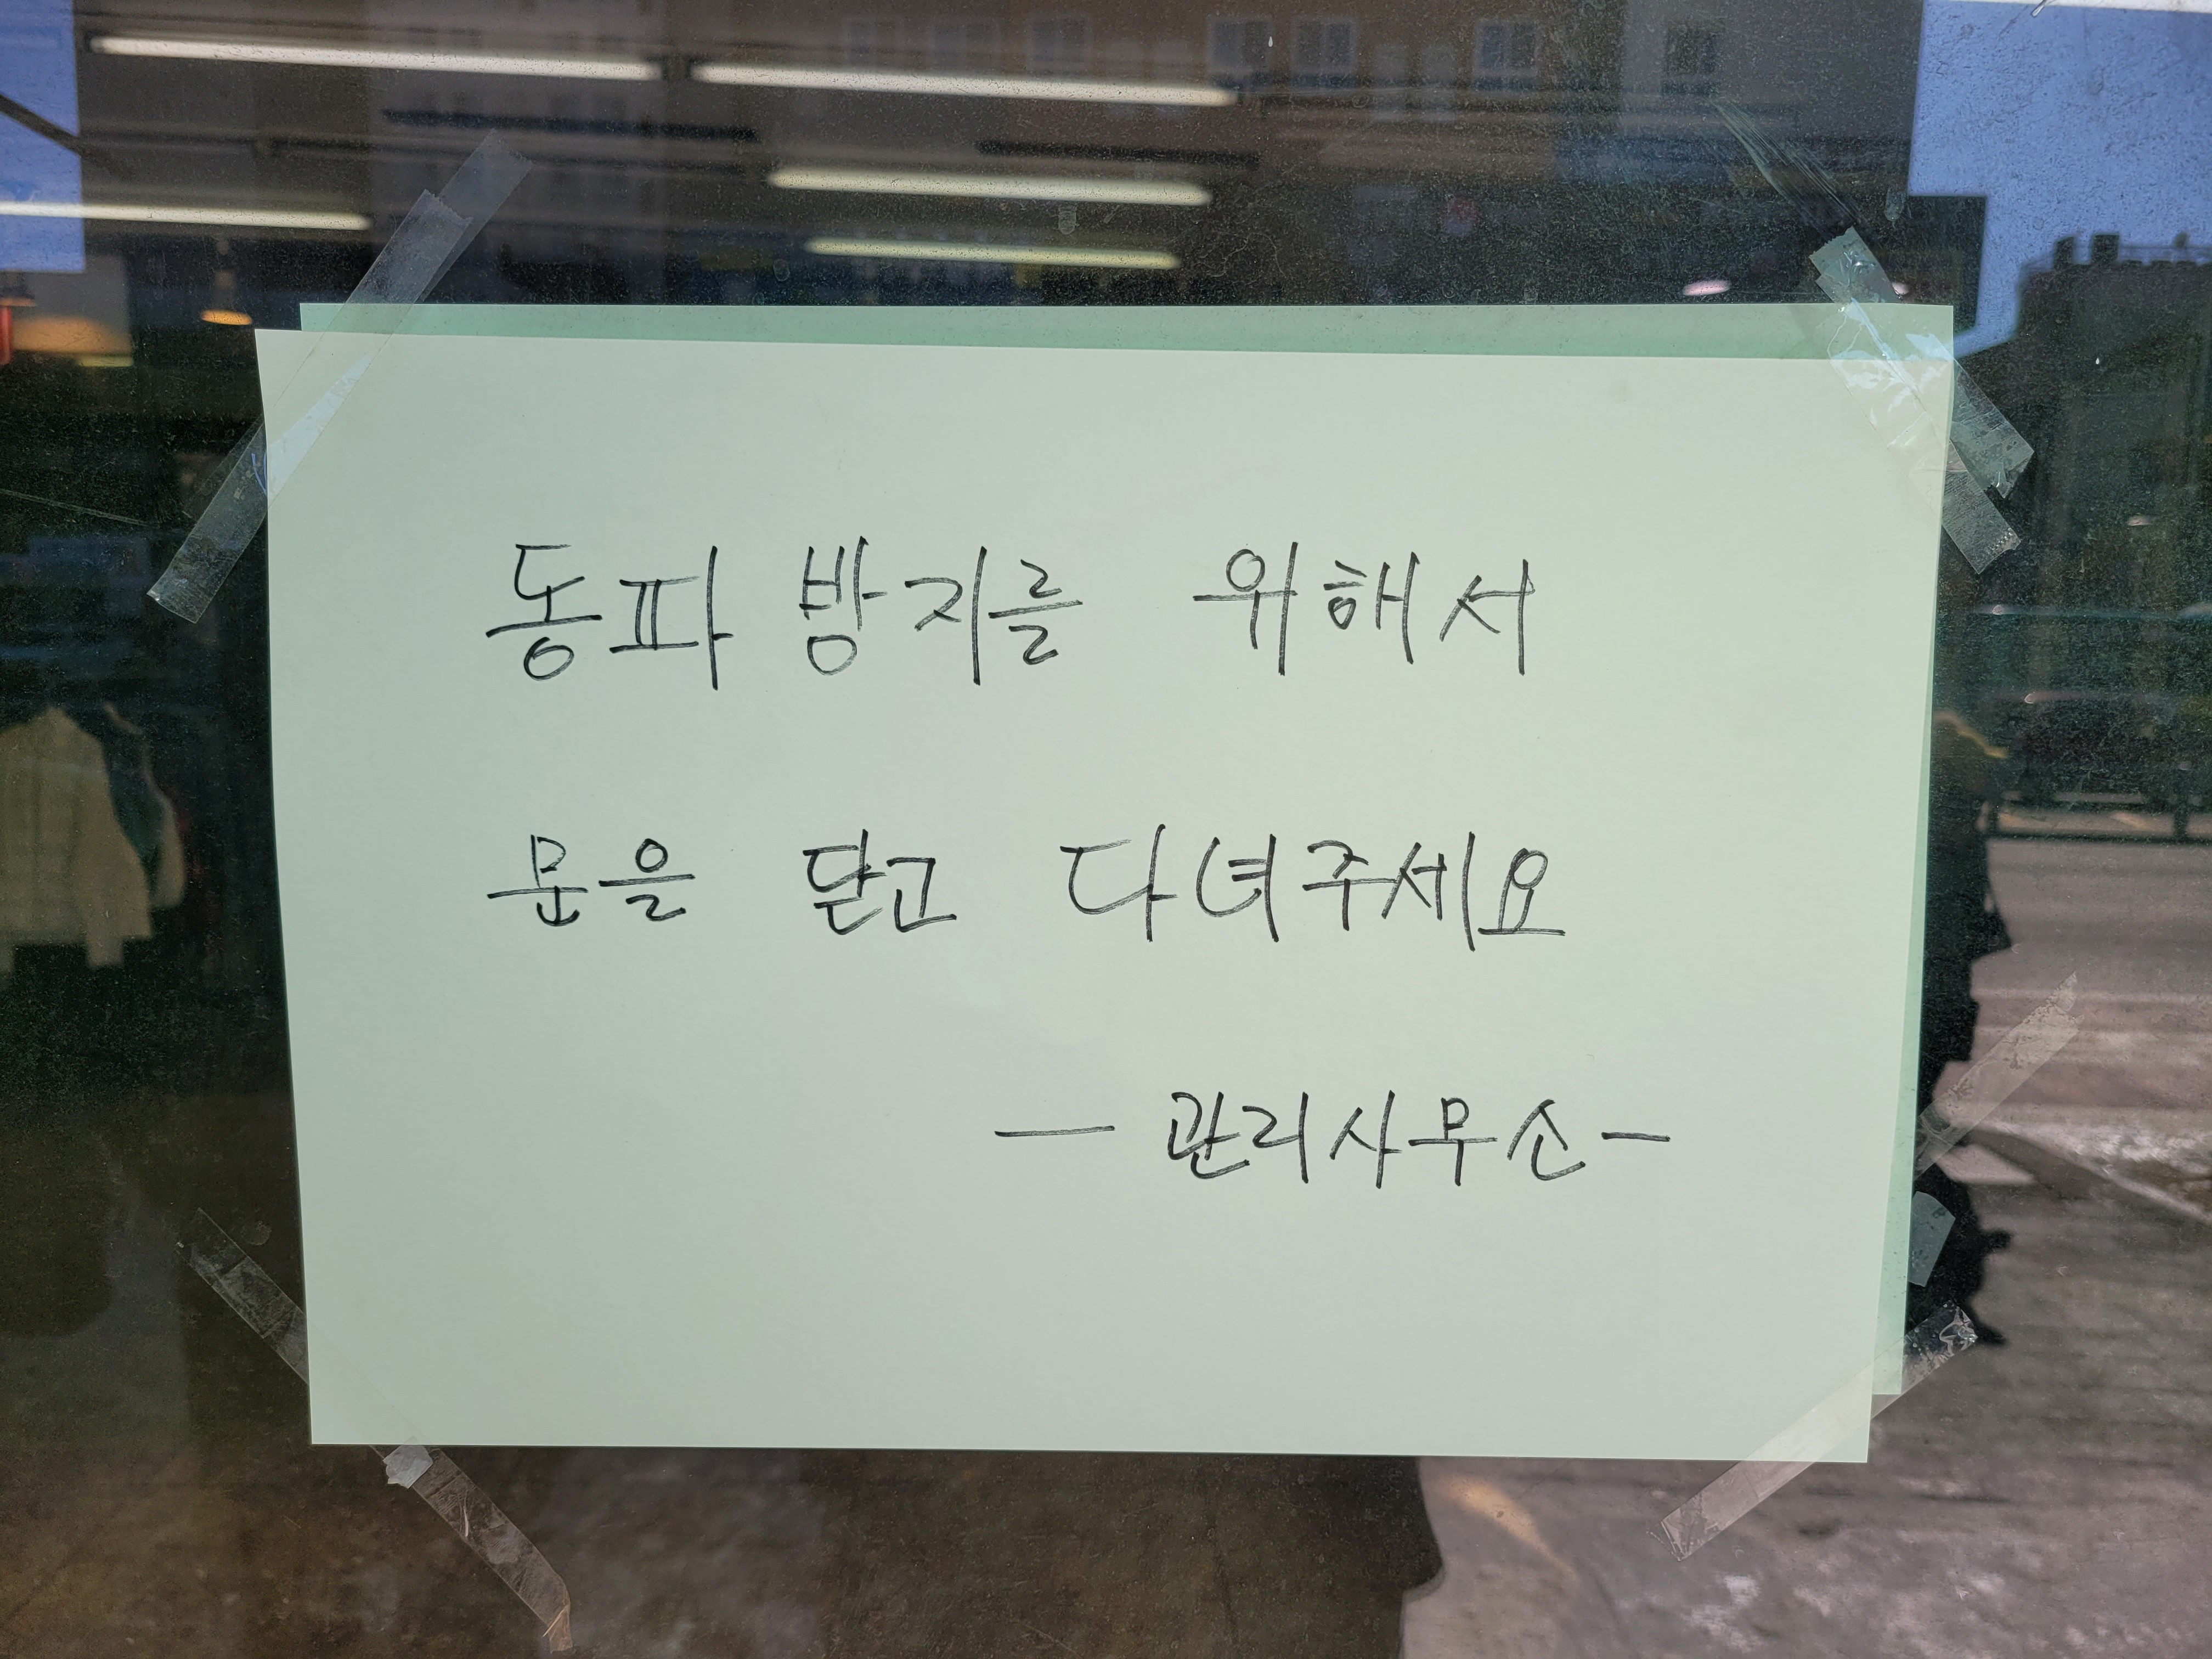 동파 방지를 위해서
문을 닫고 다녀주세요
- 관리사무소 -